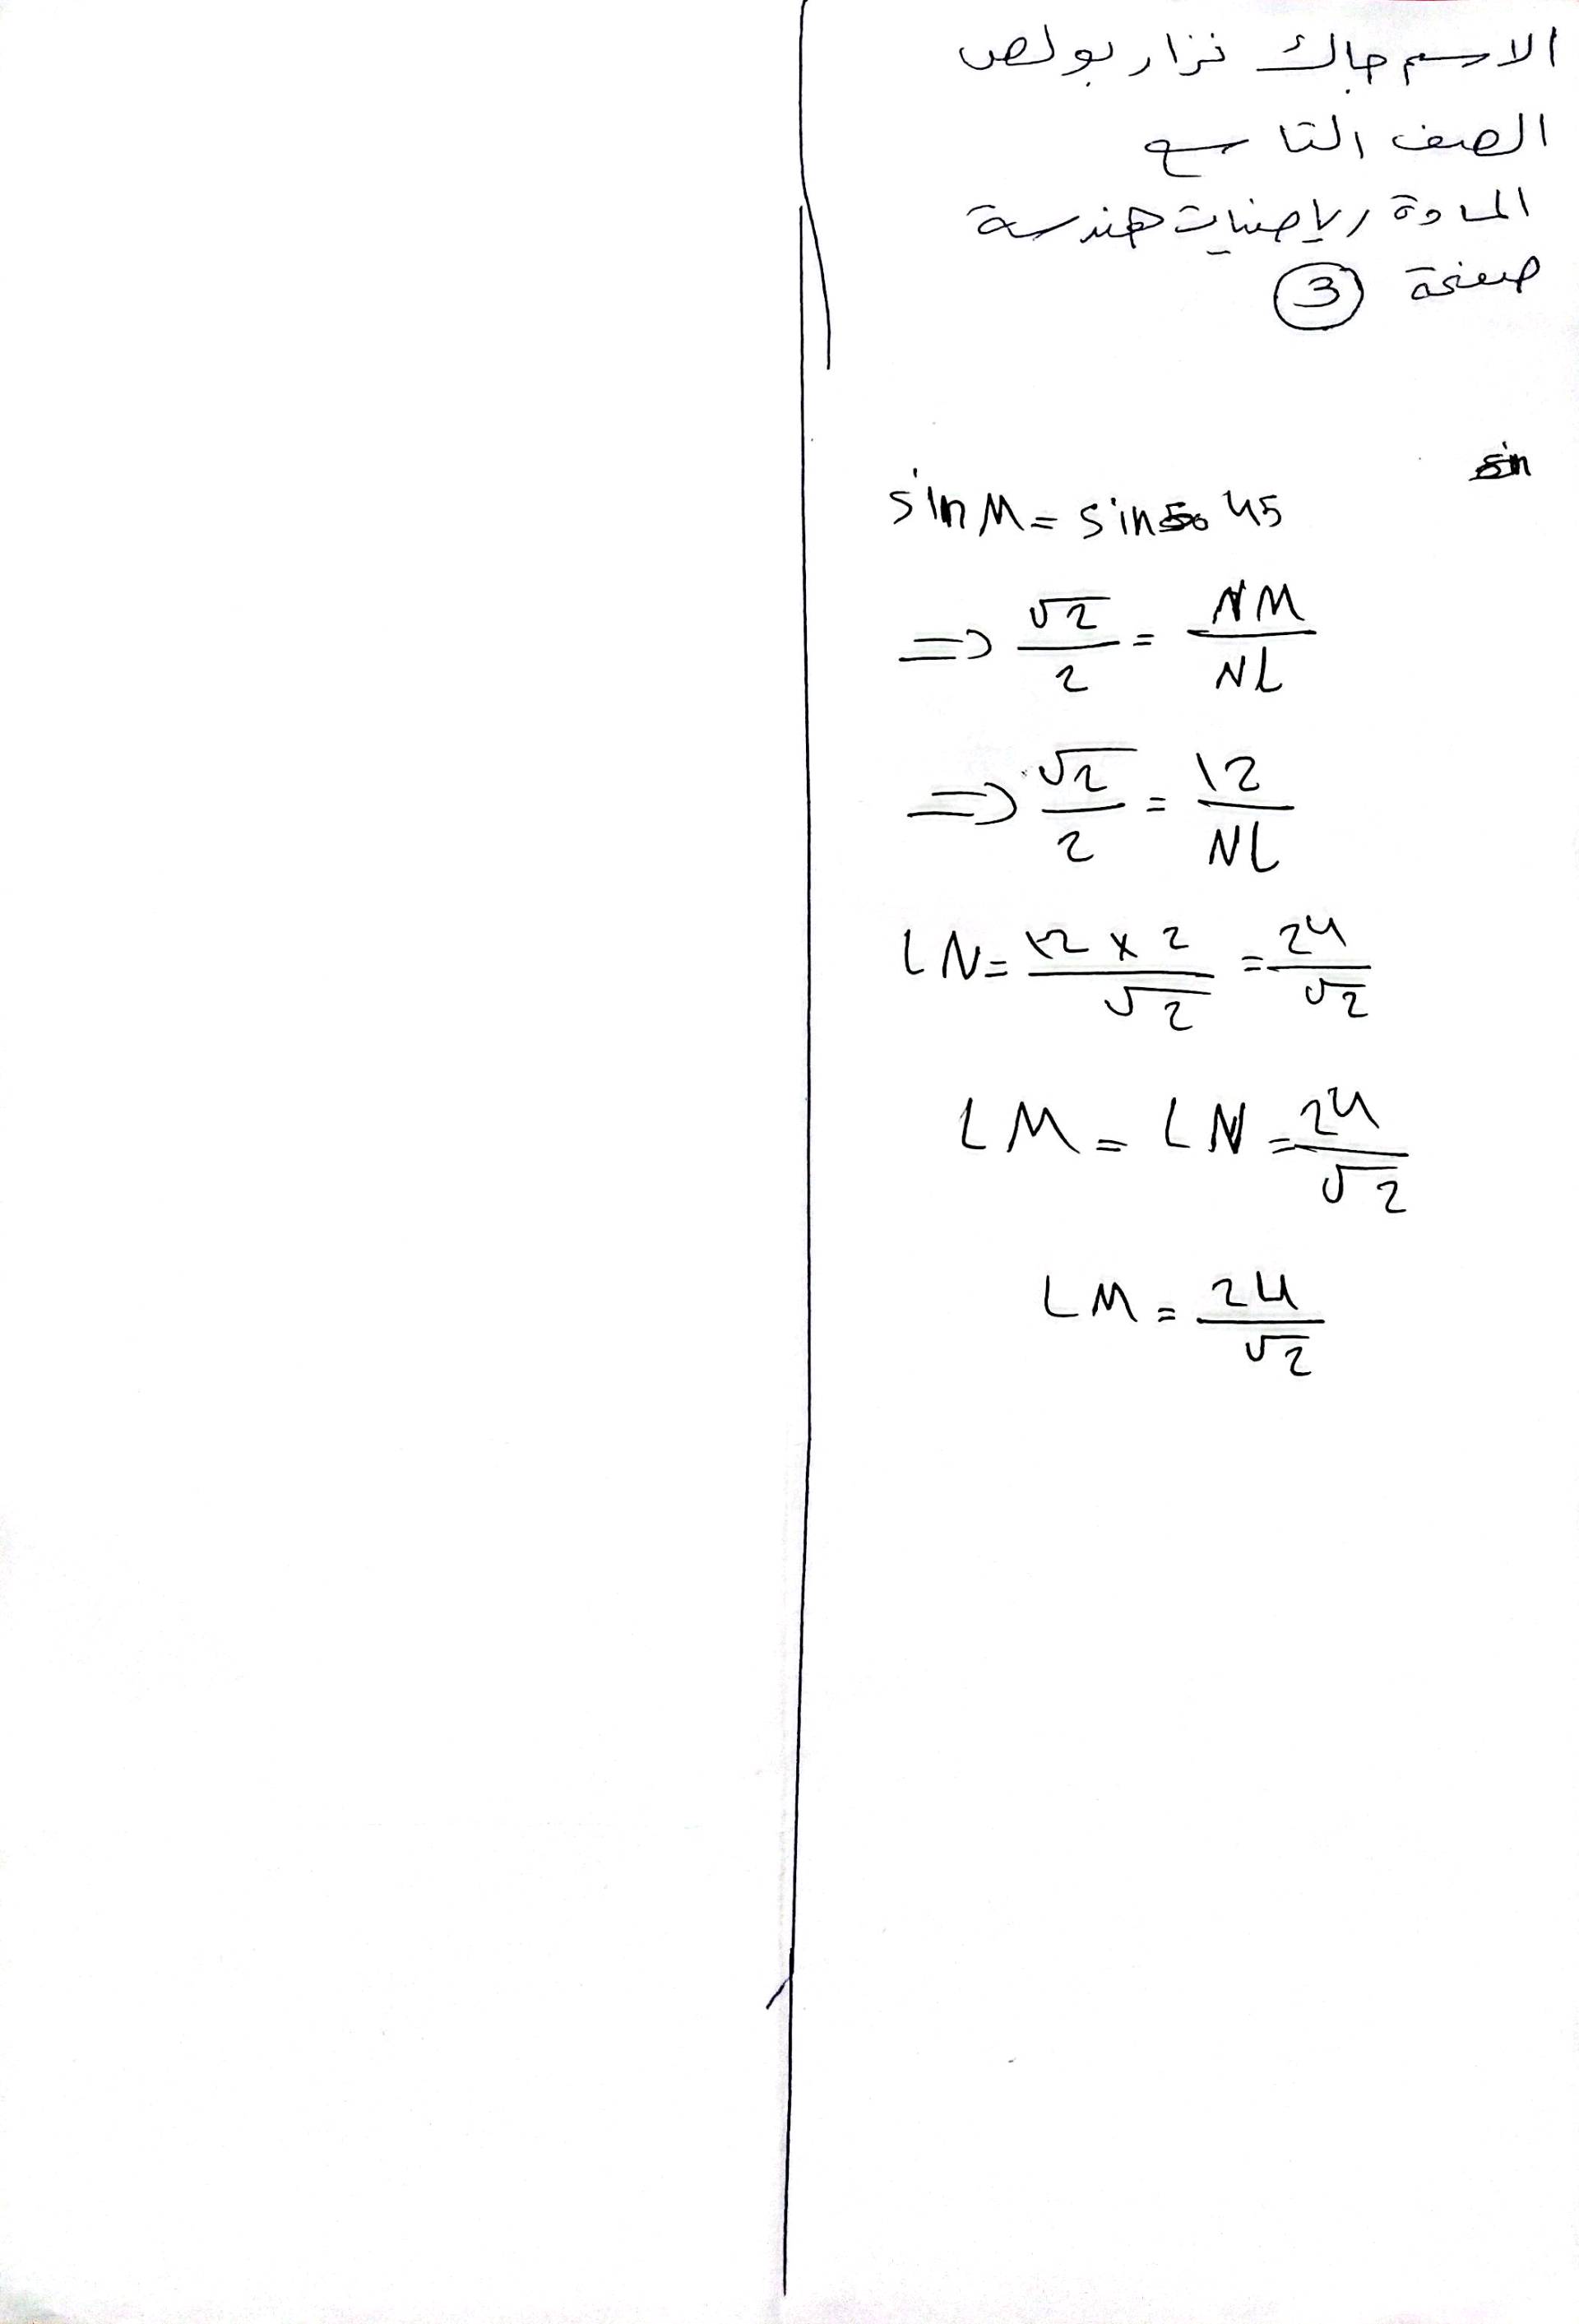 الاسم جاك نزار بولص
الصف التاسع
المادة رياضيات هندسة
صفحة 3
sin
sin M = sin 45
=> √2/2 = NM/NL
=> √2/2 = 12/NL
LN = 12 x 2/√2 = 24/√2
LM = LN = 24/√2
LM = 24/√2